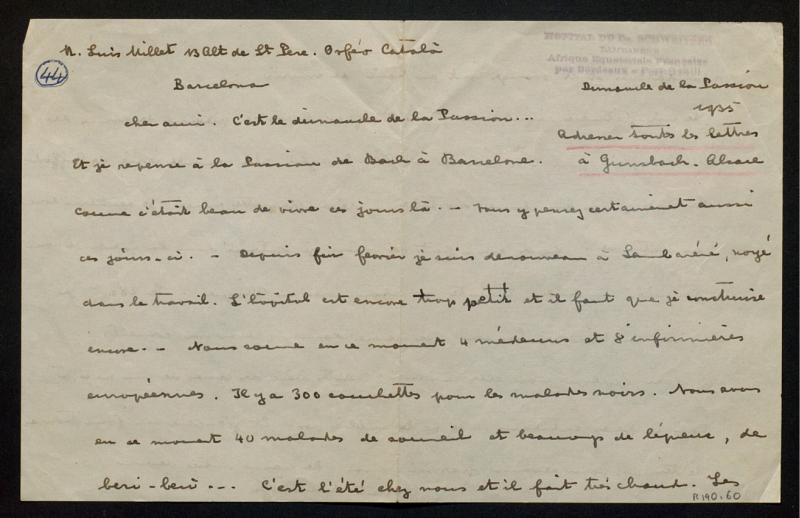 M. Luis Millet 13 Alt de St Pere. Orféo Català
HOPITAL DU Dr SCHWEITZER
LAMBARENE
Afrique Equatoriale Française
par Bordeaux - Port-Gentil
44
Barcelona
Dimanche de la Passion
1935
cher ami. C'est le dimanche de la Passion...
Adresser toutes les lettres
à Gunsbach. Alsace
Et je repense à la Passion de Bach à Barcelone.
comme c'était beau de vivre ces jours là. - Vous y pensez certainement aussi
ces jours-ci. - Depuis fin fevrier je suis denouveau à Lambaréné, noyé
dans le travail. L'hôpital est encore trop petit et il faut que je construise
encore. - Nous sommes en ce moment 4 médecins et 8 infirmières
européennes. Il y a 300 couchettes pour les malades noirs. Nous avons
en ce moment 40 malades de sommeil et beaucoup de lépreux, de
beri-beri... C'est l'été chez nous et il fait très chaud. Les
R190.60